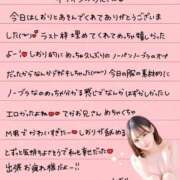 今日はしおりとあそんでくれてありがとうございま
した(^^) ラスト枠埋めてくれてめっちゃ嬉しかっ
たよ しおり的にめっちゃ久しぶりのノーパンノーブラのオプ
だったからなんかドキドキしちゃった(^^) 今日の服の素材的に
ノーブラなのめっちゃ分かる感じでなんかはずかしかったし
エロかったよね てかお兄さんめちゃくちゃ
M男でかわいすぎたー しおりが舐める
とずっと気持ちよさそうで私も幸せだった
出張お疲れ様だったー!!